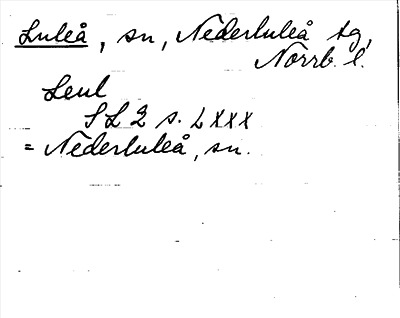 Luleå, sn, Nederluleå tg,
Norrb. l.
Leul
SL 2 s. LXXX
= Nederluleå, sn.